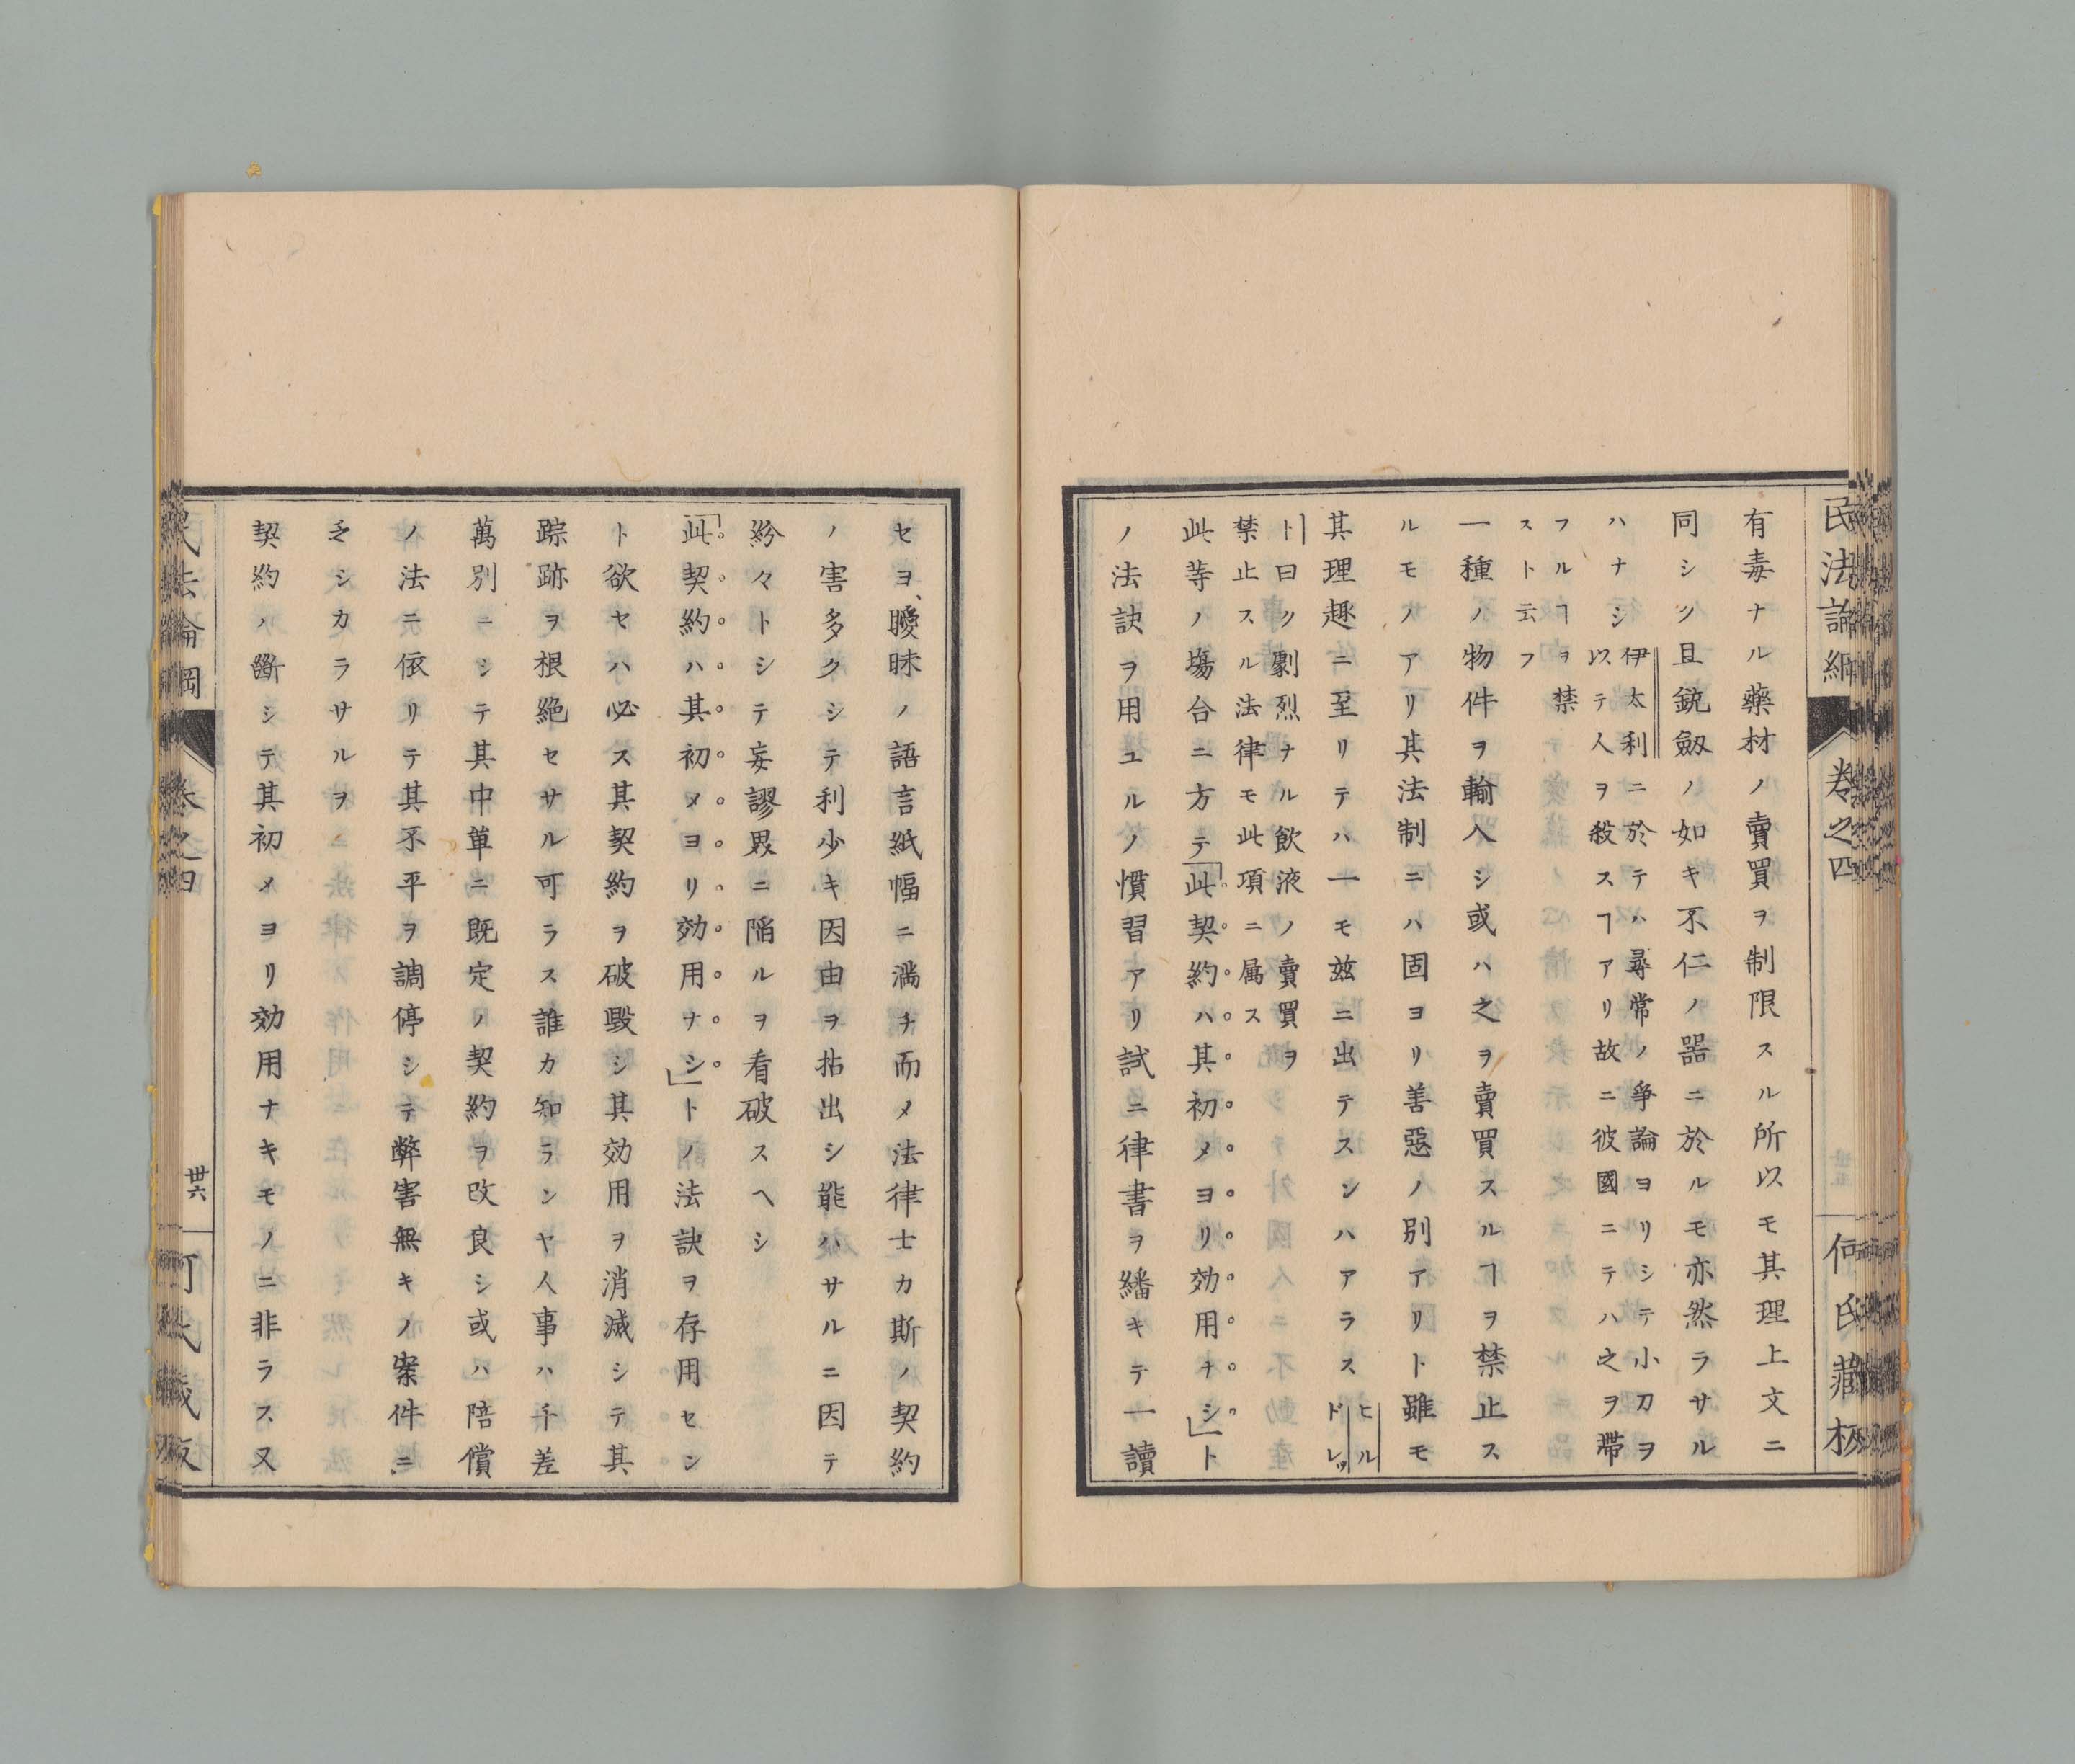 民法論綱
卷之四
何氏藏板
有毒ナル藥材ノ賣買ヲ制限スル所以モ其理上文ニ
同シク且銃劔ノ如キ不仁ノ器ニ於ルモ亦然ラサル
ハナシ
伊太利ニ於テハ尋常ノ爭論ヨリシテ小刀ヲ
以テ人ヲ殺スヿアリ故ニ彼國ニテハ之ヲ帶
フルヿヲ禁
スト云フ
一種ノ物件ヲ輸入シ或ハ之ヲ賣買スルヿヲ禁止ス
ルモノアリ其法制ニハ固ヨリ善惡ノ別アリト雖モ
其理趣ニ至リテハ一モ玆ニ出テスンハアラス
ヒル
ドレッ
ト曰ク劇烈ナル飲液ノ賣買ヲ
禁止スル法律モ此項ニ属ス
此等ノ塲合ニ方テ「此契約ハ其初メヨリ効用ナシ」ト
ノ法訣ヲ用ユルノ慣習アリ試ニ律書ヲ繙キテ一讀
セヨ、曖昧ノ語言紙幅ニ満チ而メ法律士カ斯ノ契約
ノ害多クシテ利少キ因由ヲ拈出シ能ハサルニ因テ
紛々トシテ妄謬界ニ陥ルヲ看破スヘシ
「此契約ハ其初メヨリ効用ナシ」トノ法訣ヲ存用セン
ト欲セハ必ス其契約ヲ破毀シ其効用ヲ消滅シテ其
踪跡ヲ根絶セサル可ラス誰カ知ランヤ人事ハ千差
萬別ニシテ其中単ニ既定ノ契約ヲ改良シ或ハ陪償
ノ法ニ依リテ其不平ヲ調停シテ弊害無キノ案件ニ
乏シカラサルヲ
契約ノ斷シテ其初メヨリ効用ナキモノニ非ラス又
民法論綱
卷之四
丗六
何氏藏板